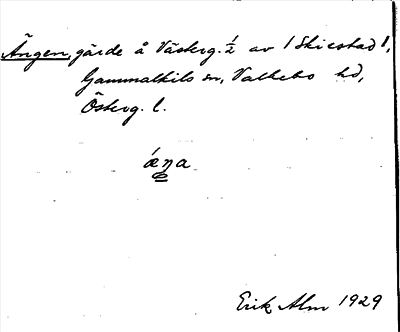 Ängen, gärde å Västerg. 1/2 av 1 Skiestad 1,
Gammalkils sn, Valkebo hd,
Österg. l.
ǽŋa
Erik Alm 1929